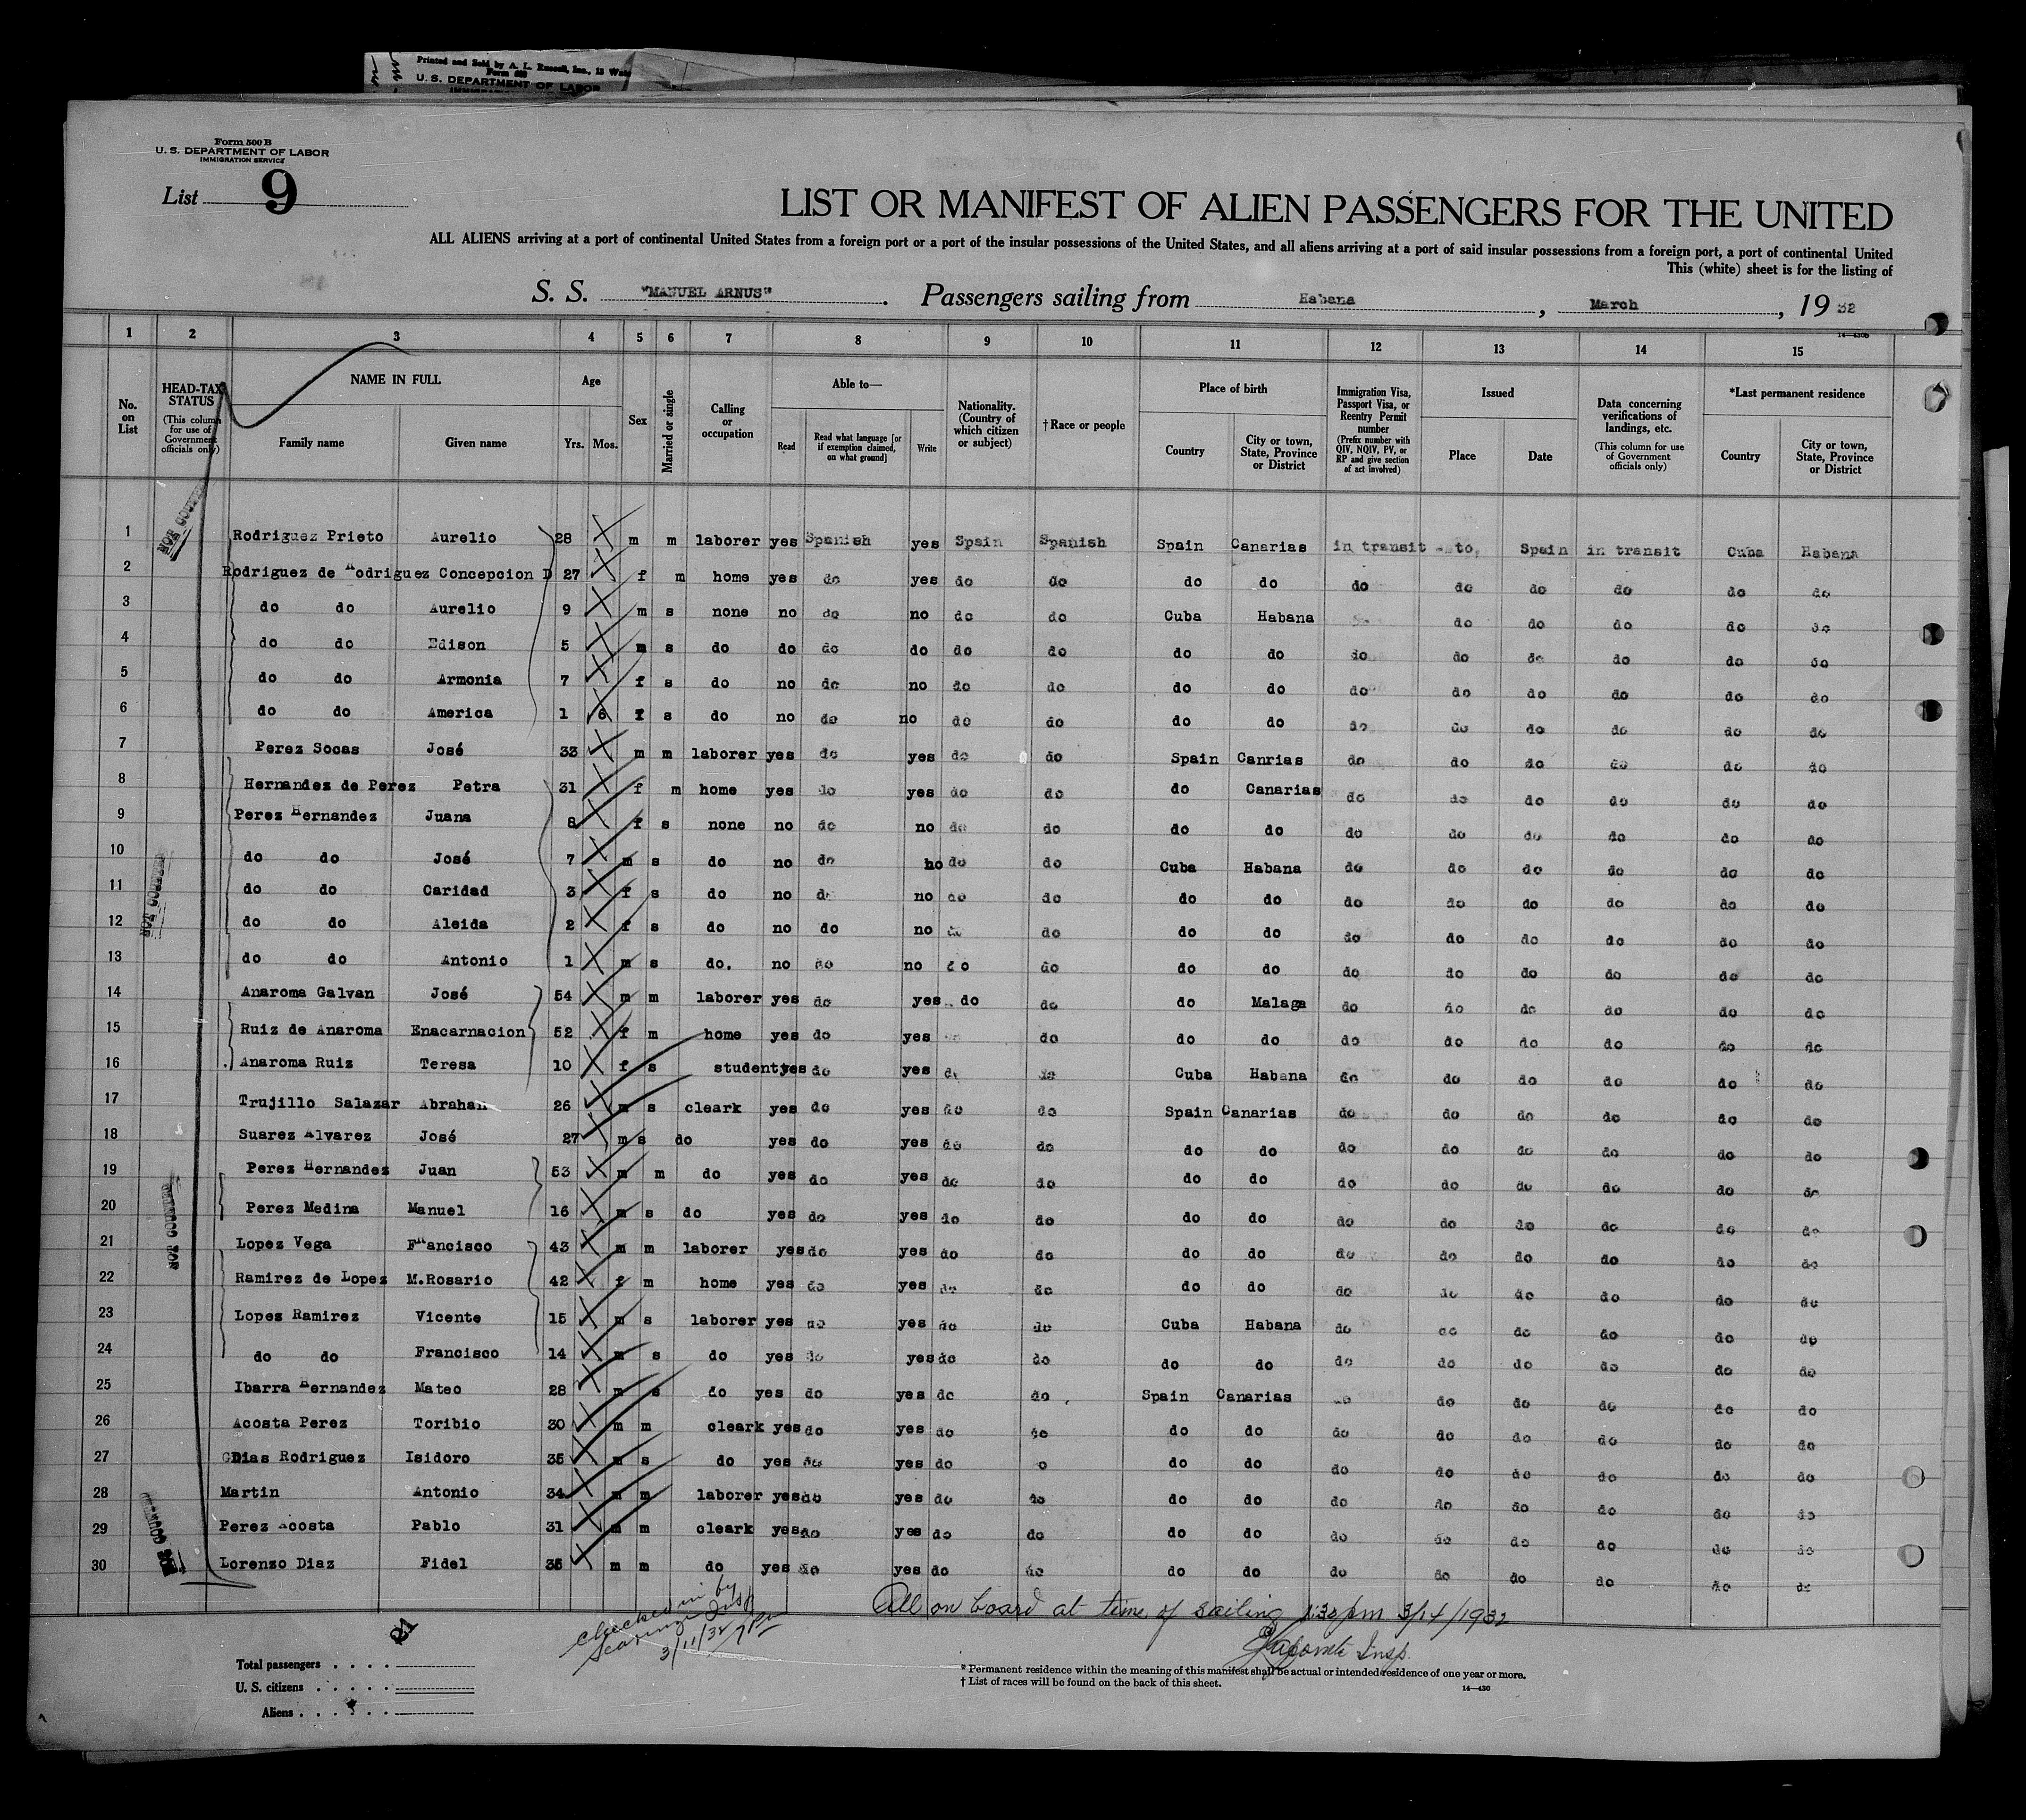 Printed and Sold by A. L. Russell, Inc., 13 Wate
Form 500
U. S. DEPARTMENT OF LABOR
Form 500 B
U. S. DEPARTMENT OF LABOR
IMMIGRATION SERVICE
List 9
LIST OR MANIFEST OF ALIEN PASSENGERS FOR THE UNITED
ALL ALIENS arriving at a port of continental United States from a foreign port or a port of the insular possessions of the United States, and all aliens arriving at a port of said insular possessions from a foreign port, a port of continental United
This (white) sheet is for the listing of
S. S. "MANUEL ARNUS". Passengers sailing from Habana, March, 19 32
1 2 3 4 5 6 7 8 9 10 11 12 13 14 15
No. on List
HEAD-TAX STATUS (This column for use of Government officials only)
NAME IN FULL
Family name Given name
Age
Yrs. Mos.
Sex
Married or single
Calling or occupation
Able to—
Read
Read what language [or if exemption claimed, on what ground]
Write
Nationality. (Country of which citizen or subject)
†Race or people
Place of birth
Country
City or town, State, Province or District
Immigration Visa, Passport Visa, or Reentry Permit number (Prefix number with QIV, NQIV, PV, or RP and give section of act involved)
Issued
Place Date
Data concerning verifications of landings, etc. (This column for use of Government officials only)
*Last permanent residence
Country
City or town, State, Province or District
1 Rodriguez Prieto Aurelio 28 m m laborer yes Spanish yes Spain Spanish Spain Canarias in transit to, Spain in transit Cuba Habana
2 Rodriguez de Rodriguez Concepcion D 27 f m home yes do yes do do do do do do do do do do
3 do do Aurelio 9 m s none no do no do do Cuba Habana do do do do do
4 do do Edison 5 m s do do do do do do do do do do do do do do
5 do do Armonia 7 f s do no do no do do do do do do do do do do
6 do do America 1 6 f s do no do no do do do do do do do do do do
7 Perez Socas José 33 m m laborer yes do yes do do Spain Canrias do do do do do do
8 Hernandez de Perez Petra 31 f m home yes do yes do do do Canarias do do do do do do
9 Perez Hernandez Juana 8 f s none no do no do do do do do do do do do do
10 do do José 7 m s do no do no do do Cuba Habana do do do do do do
11 do do Caridad 3 f s do no do no do do do do do do do do do do
12 do do Aleida 2 f s do no do no do do do do do do do do do do
13 do do Antonio 1 m s do. no do no do do do do do do do do do do
14 Anaroma Galvan José 54 m m laborer yes do yes do do do Malaga do do do do do do
15 Ruiz de Anaroma Enacarnacion 52 f m home yes do yes do do do do do do do do do
16 Anaroma Ruiz Teresa 10 f s student yes do yes do do Cuba Habana do do do do do do
17 Trujillo Salazar Abrahan 26 m s cleark yes do yes do do Spain Canarias do do do do do do
18 Suarez Alvarez José 27 m s do yes do yes do do do do do do do do do do
19 Perez Hernandez Juan 53 m m do yes do yes do do do do do do do do do do
20 Perez Medina Manuel 16 m s do yes do yes do do do do do do do do do do
21 Lopez Vega Francisco 43 m m laborer yes do yes do do do do do do do do do do
22 Ramirez de Lopez M.Rosario 42 f m home yes do yes do do do do do do do do do do
23 Lopez Ramirez Vicente 15 m s laborer yes do yes do do Cuba Habana do do do do do do
24 do do Francisco 14 m s do yes do yes do do do do do do do do do do
25 Ibarra Hernandez Mateo 28 m s do yes do yes do do Spain Canarias do do do do do
26 Acosta Perez Toribio 30 m m cleark yes do yes do do do do do do do do do do
27 Dias Rodriguez Isidoro 35 m s do yes do yes do o do do do do do do do do
28 Martin Antonio 34 m m laborer yes do yes do do do do do do do do do do
29 Perez Acosta Pablo 31 m m cleark yes do yes do do do do do do do do do do
30 Lorenzo Diaz Fidel 35 m m do yes do yes do do do do do do do do do do
checked in by
3/11/32 7 pm
All on board at time of sailing 1:30 pm 3/14/1932
Insp.
21
Total passengers
U. S. citizens
Aliens
* Permanent residence within the meaning of this manifest shall be actual or intended residence of one year or more.
† List of races will be found on the back of this sheet.
14—430